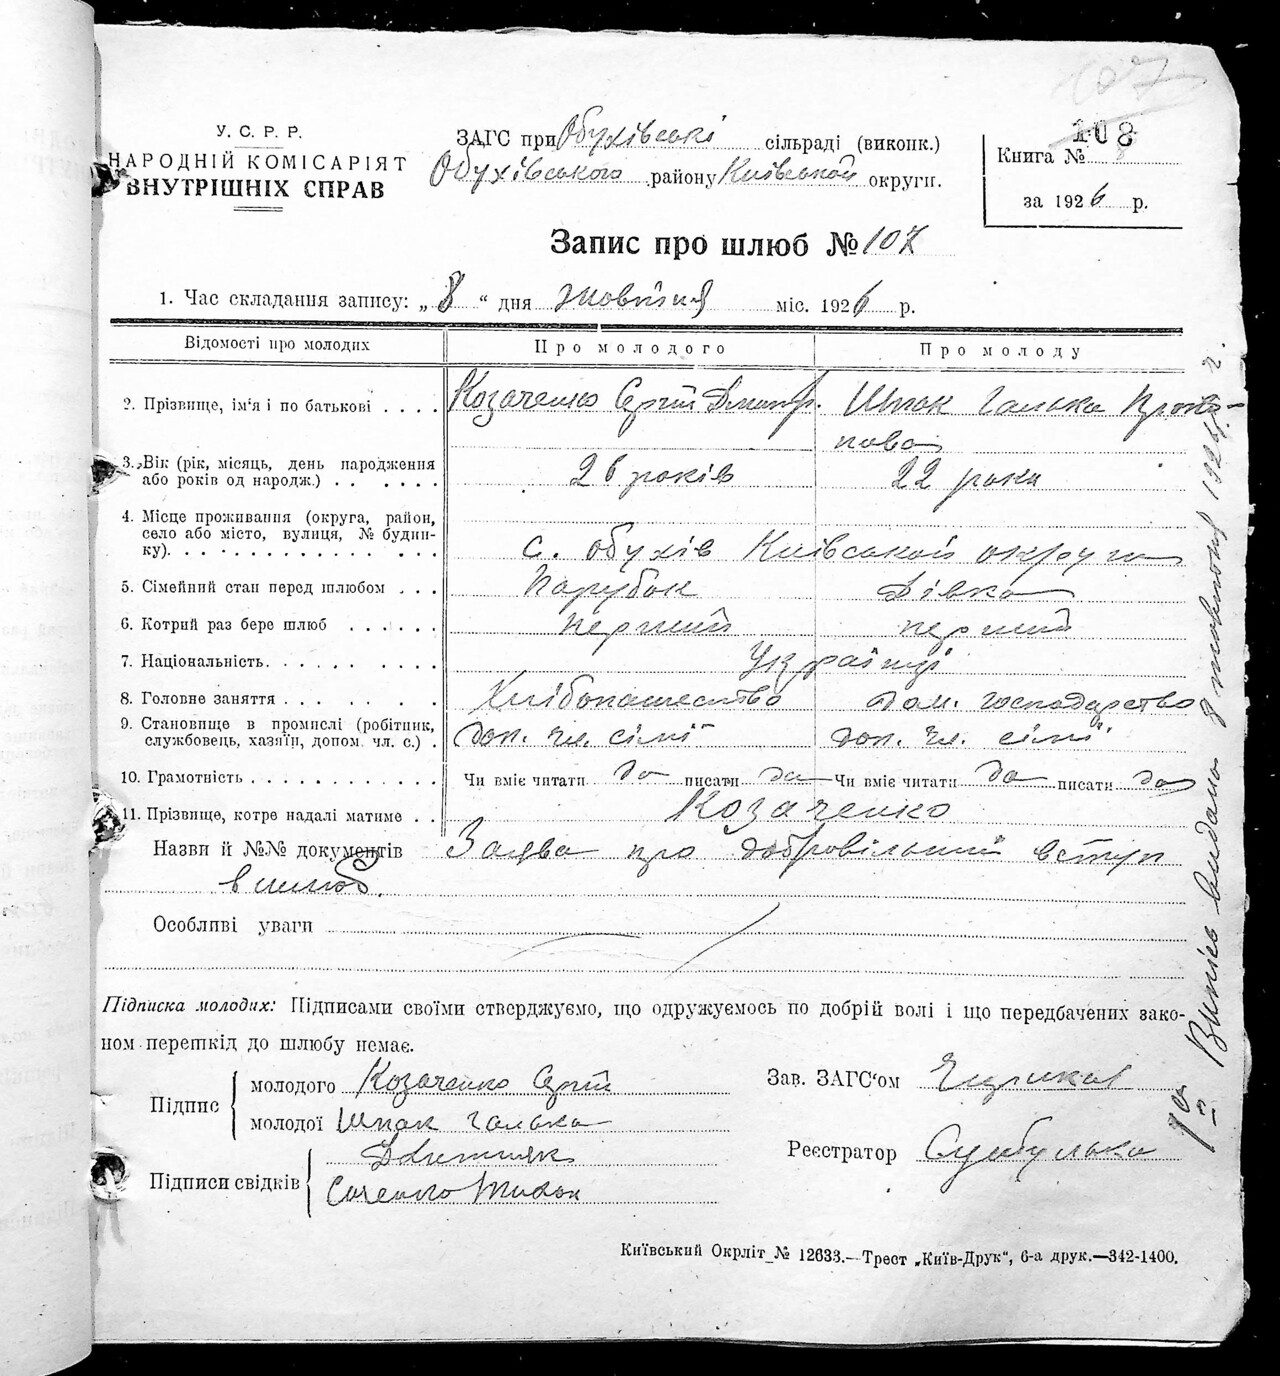 107
У. С. Р. Р.
НАРОДНІЙ КОМІСАРІЯТ
ВНУТРІШНІХ СПРАВ
ЗАГС при Обухівські сільраді (виконк.)
Обухівського району Київськой округи.
108
Книга №
за 1926 р.
Запис про шлюб № 107
1. Час складання запису: „ 8 “ дня жовтня міс. 1926 р.
Відомості про молодих Про молодого Про молоду
2. Прізвище, ім‘я і по батькові . . . . Козаченко Сергій Дмитр. Шпак Галька Проко-
пова
3. Вік (рік, місяць, день народження
або років од народж.) . . . . . . 26 років 22 роки
4. Місце проживання (округа, район,
село або місто, вулиця, № будин-
ку). с. Обухів Київськой округи
5. Сімейний стан перед шлюбом . . . Парубок Дівка
6. Котрий раз бере шлюб . . . . . . перший перший
7. Національність. Українці
8. Головне заняття Хлібопашество Дом. господарство
9. Становище в промислі (робітник,
службовець, хазяїн, допом. чл. с.) . доп. чл. сімї доп. чл. сімї
10. Грамотність Чи вміє читати да писати да Чи вміє читати да писати да
11. Прізвище, котре надалі матиме . . Козаченко
Назви й №№ документів Заява про добровільний вступ
в шлюб.
Особливі уваги
Підписка молодих: Підписами своїми стверджуємо, що одружуємось по добрій волі і що передбачених зако-
ном перешкід до шлюбу немає.
Підпис
молодого Козаченко Сергій
молодої Шпак Галька
Підписи свідків
Зав. ЗАГС‘ом
Реєстратор
Київський Окрліт № 12633.—Трест „Київ-Друк“, 6-а друк.—342-1400.
Випись видана 8 жовтня 1926 р.